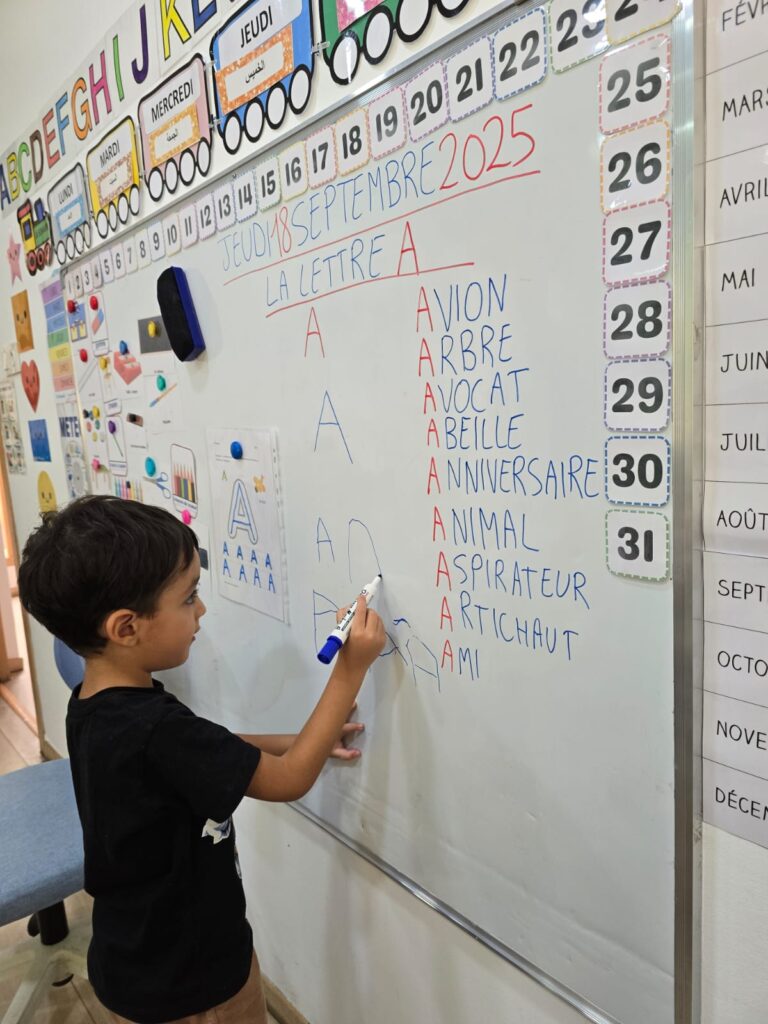 ABCDEFGHIJKL
LUNDI
MARDI
MERCREDI
الأربعاء
JEUDI
الخميس
1 2 3 4 5 6 7 8 9 10 11 12 13 14 15 16 17 18 19 20 21 22 23 24
25
26
27
28
29
30
31
JEUDI 18 SEPTEMBRE 2025
LA LETTRE A
A
A
A
A
AVION
ARBRE
AVOCAT
ABEILLE
ANNIVERSAIRE
ANIMAL
ASPIRATEUR
ARTICHAUT
AMI
METEO
A
A A A A
A A A A
FÉVR
MARS
AVRIL
MAI
JUIN
JUIL
AOÛT
SEPT
OCTO
NOVE
DÉCEM